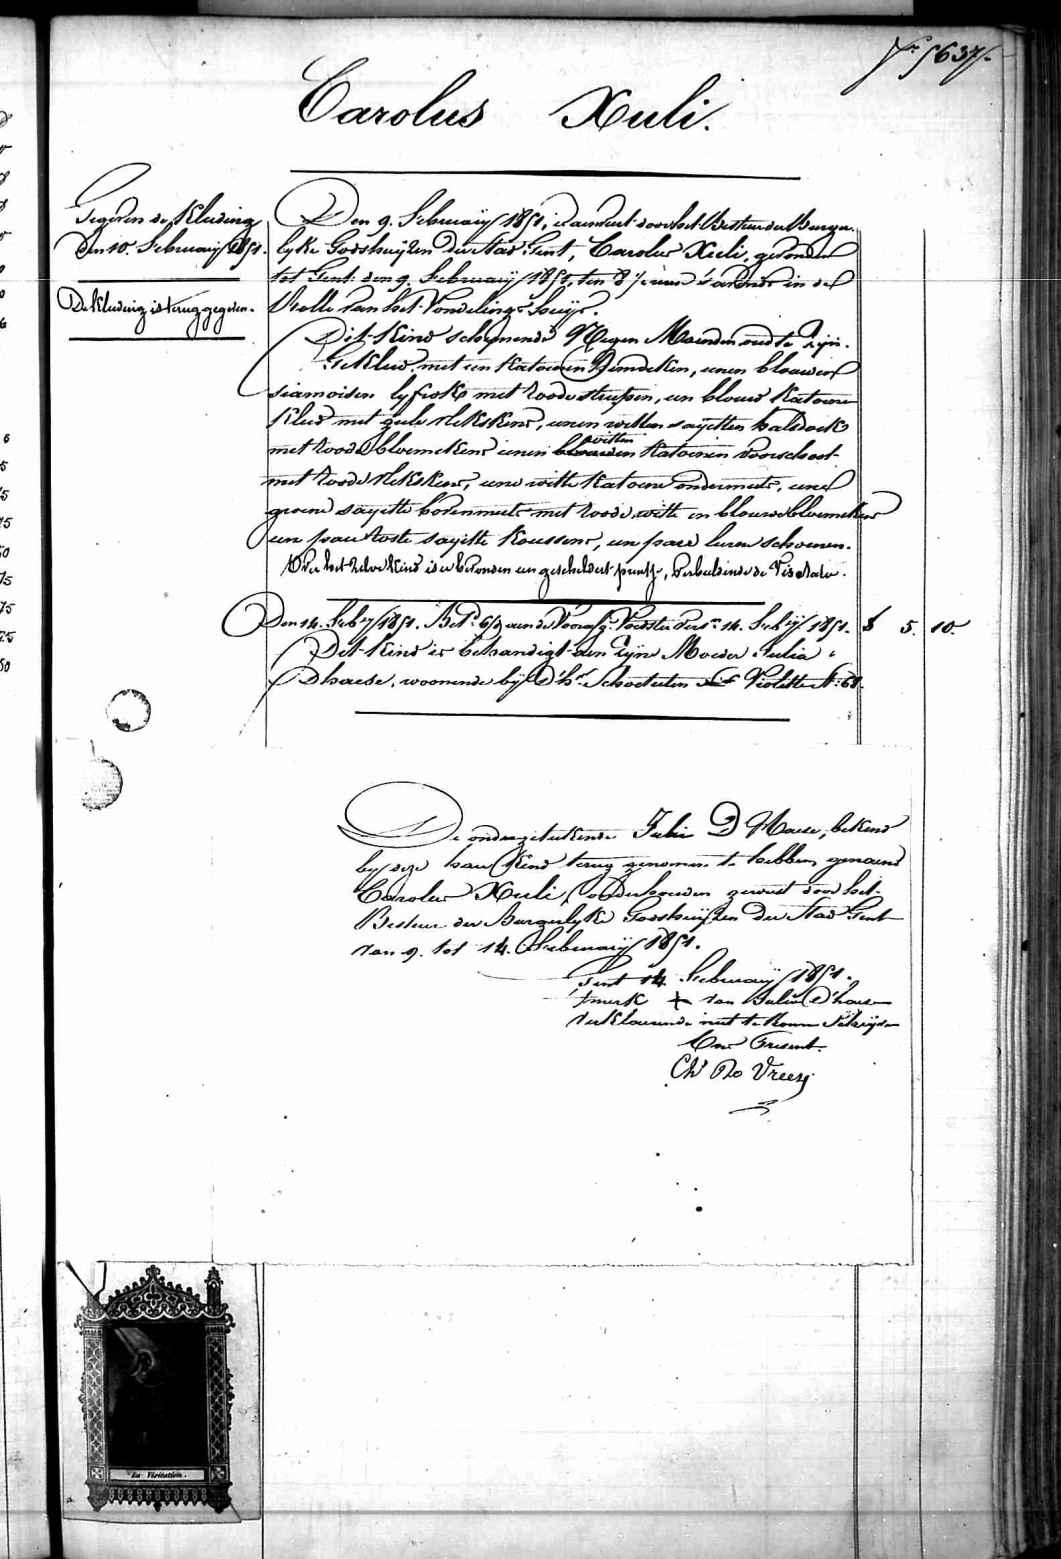 Nr 5637.
Carolus Xuli.
Gegeven de Kleeding
den 10. February 1851.
De Kleeding is terug gegeven.
Den 9. February 1851, is aenveerd door het Bestuer der Burger-
lyke Godshuyzen der Stad Gent, Carolus Xuli, gevonden
tot Gent den 9. February 1851, ten 8 ure 's avonds in de
Rolle van het Vondelings-huys.
Dit Kind schynende Negen Maenden oud te zyn.
Gekleed met een Katoenen Hemdeken, eenen blauwen
siamoisen lyfrok met roode streepen, een blauw Katoene
Kleed met geele vlekskens, eenen witten sayetten halsdoek
met roode bloemekens eenen witten Katoenen voorschoot
met roode vlekskens, eene witte Katoene ondermuts, eene
groene sayette bovenmuts met roode, witte en blauwe bloemekens
een paer roste sayette Koussens, een paer leren schoenen.
Op het zelve Kind is er bevonden een geschilderd prentje, verbeeldende de Visitatie.
Den 14. Feby 1851. Bet. 6/9 aen de Voorsz. Voedster vers. 14. Feby 1851. 5. 10.
Dit Kind is behandigt aen zyne Moeder Julia
Dhaese, woonende by D'hr. Schoetelen Violette N. 61.
De ondergeteekende Julie D'Haese, bekend
by deze haer Kind terug genomen te hebben, genaemd
Carolus Xuli, onderhouden geweest door het
Bestuer der Burgerlyke Godshuyzen der Stad Gent
van 9. tot 14. February 1851.
Gent 14 February 1851.
't merk + van Julie D'haese
verklaerende niet te konnen schryven
Ons Present.
Ch. De Vreese
La Visitation.